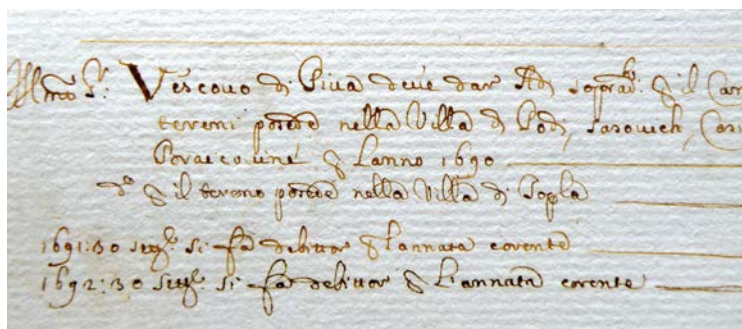 Illmo Sr: Vescovo di Piva deve dar Adi soprad: p il Cam
tereni posede nella Villa di Podi, Sasovich, Cos
p Lanno 1690
do p il tereno posede nella Villa di Topla
1691:30 settr: si fa debittor p lannata corente
1692:30 settr: si fa debittor p L'annata corente